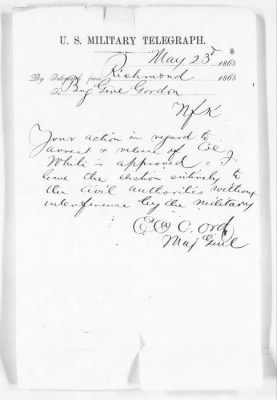 U. S. MILITARY TELEGRAPH.
May 23d 1865
By Telegraph from Richmond 1865
To Brig Genl Gordon
Nfk
Your action in regard to
arrest & release of Col
White is approved = I
leave the election entirely to
the civil authorities without
interference by the military
E O C. Ord
Maj Genl